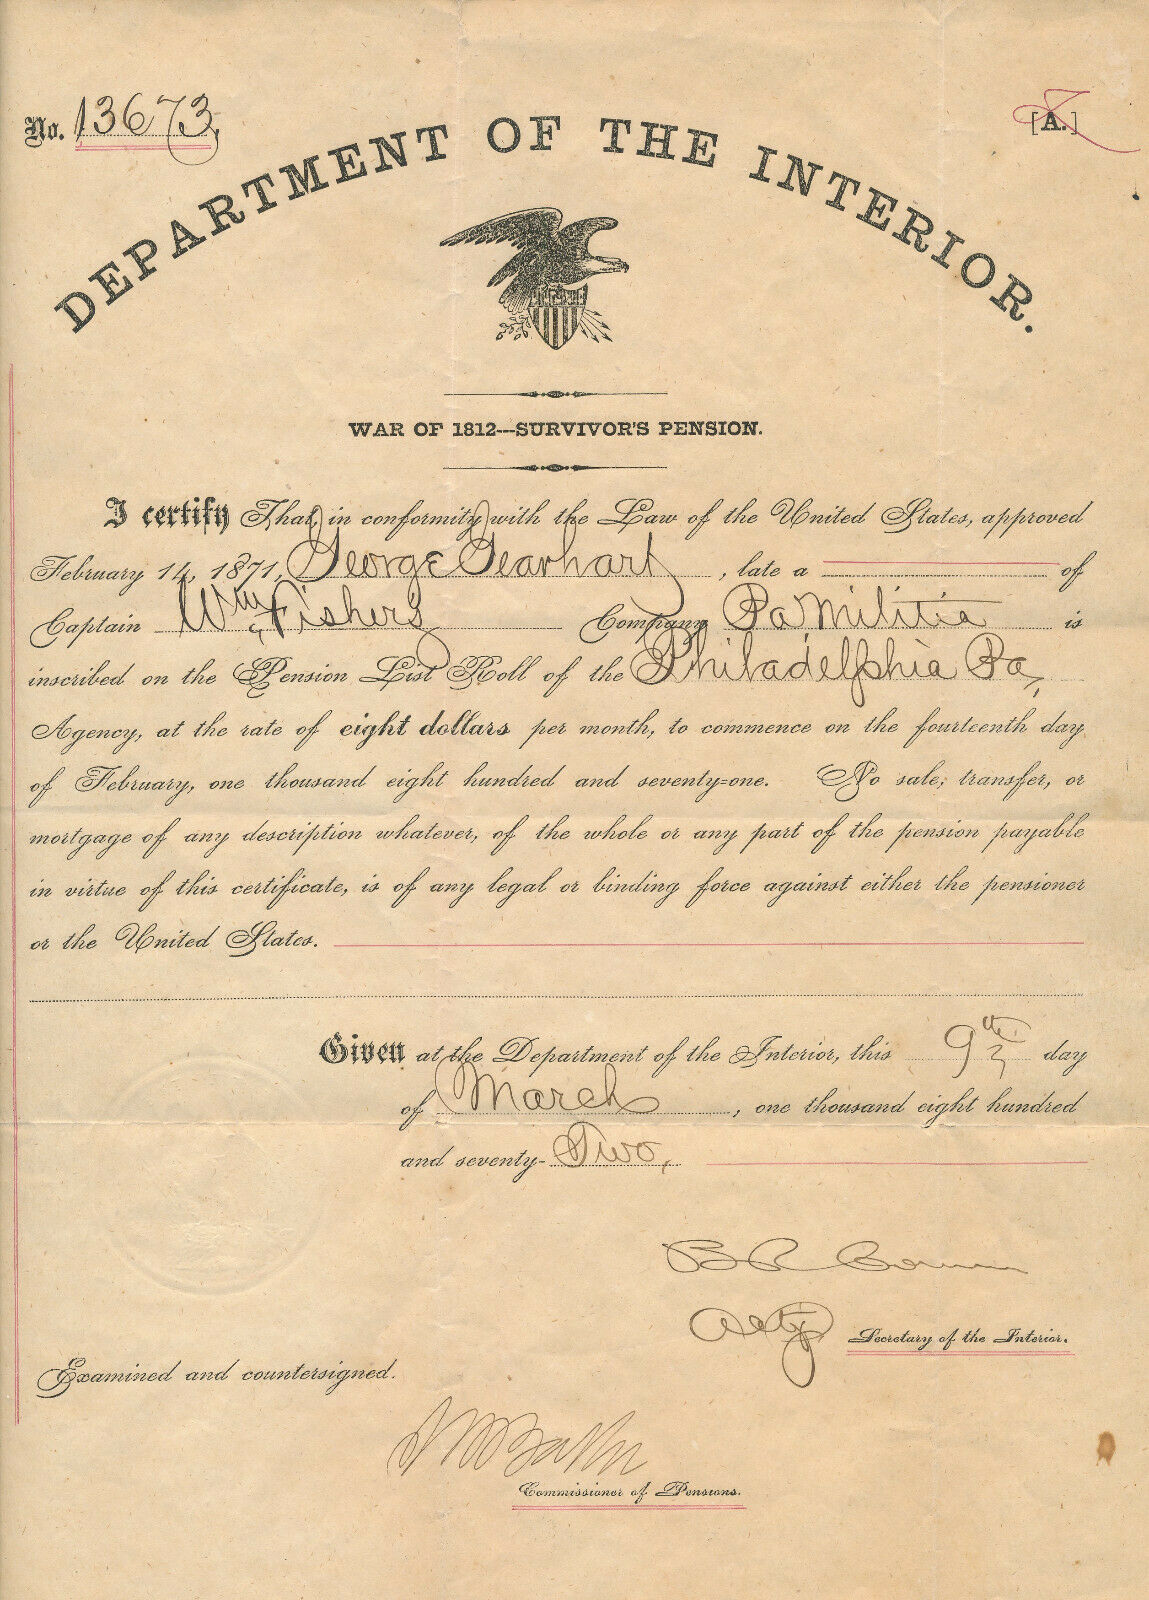 No. 13673,
[A.]
DEPARTMENT OF THE INTERIOR.
WAR OF 1812---SURVIVOR'S PENSION.
I certify That, in conformity with the Law of the United States, approved
February 14, 1871, George Gearhart, late a of
Captain Wm Fishers Company Pa Militia is
inscribed on the Pension List Roll of the Philadelphia Pa,
Agency, at the rate of eight dollars per month, to commence on the fourteenth day
of February, one thousand eight hundred and seventy-one. No sale, transfer, or
mortgage of any description whatever, of the whole or any part of the pension payable
in virtue of this certificate, is of any legal or binding force against either the pensioner
or the United States.
Given at the Department of the Interior, this 9th day
of March, one thousand eight hundred
and seventy-Two,
B R Cowen
Actg Secretary of the Interior.
Examined and countersigned.
Commissioner of Pensions.